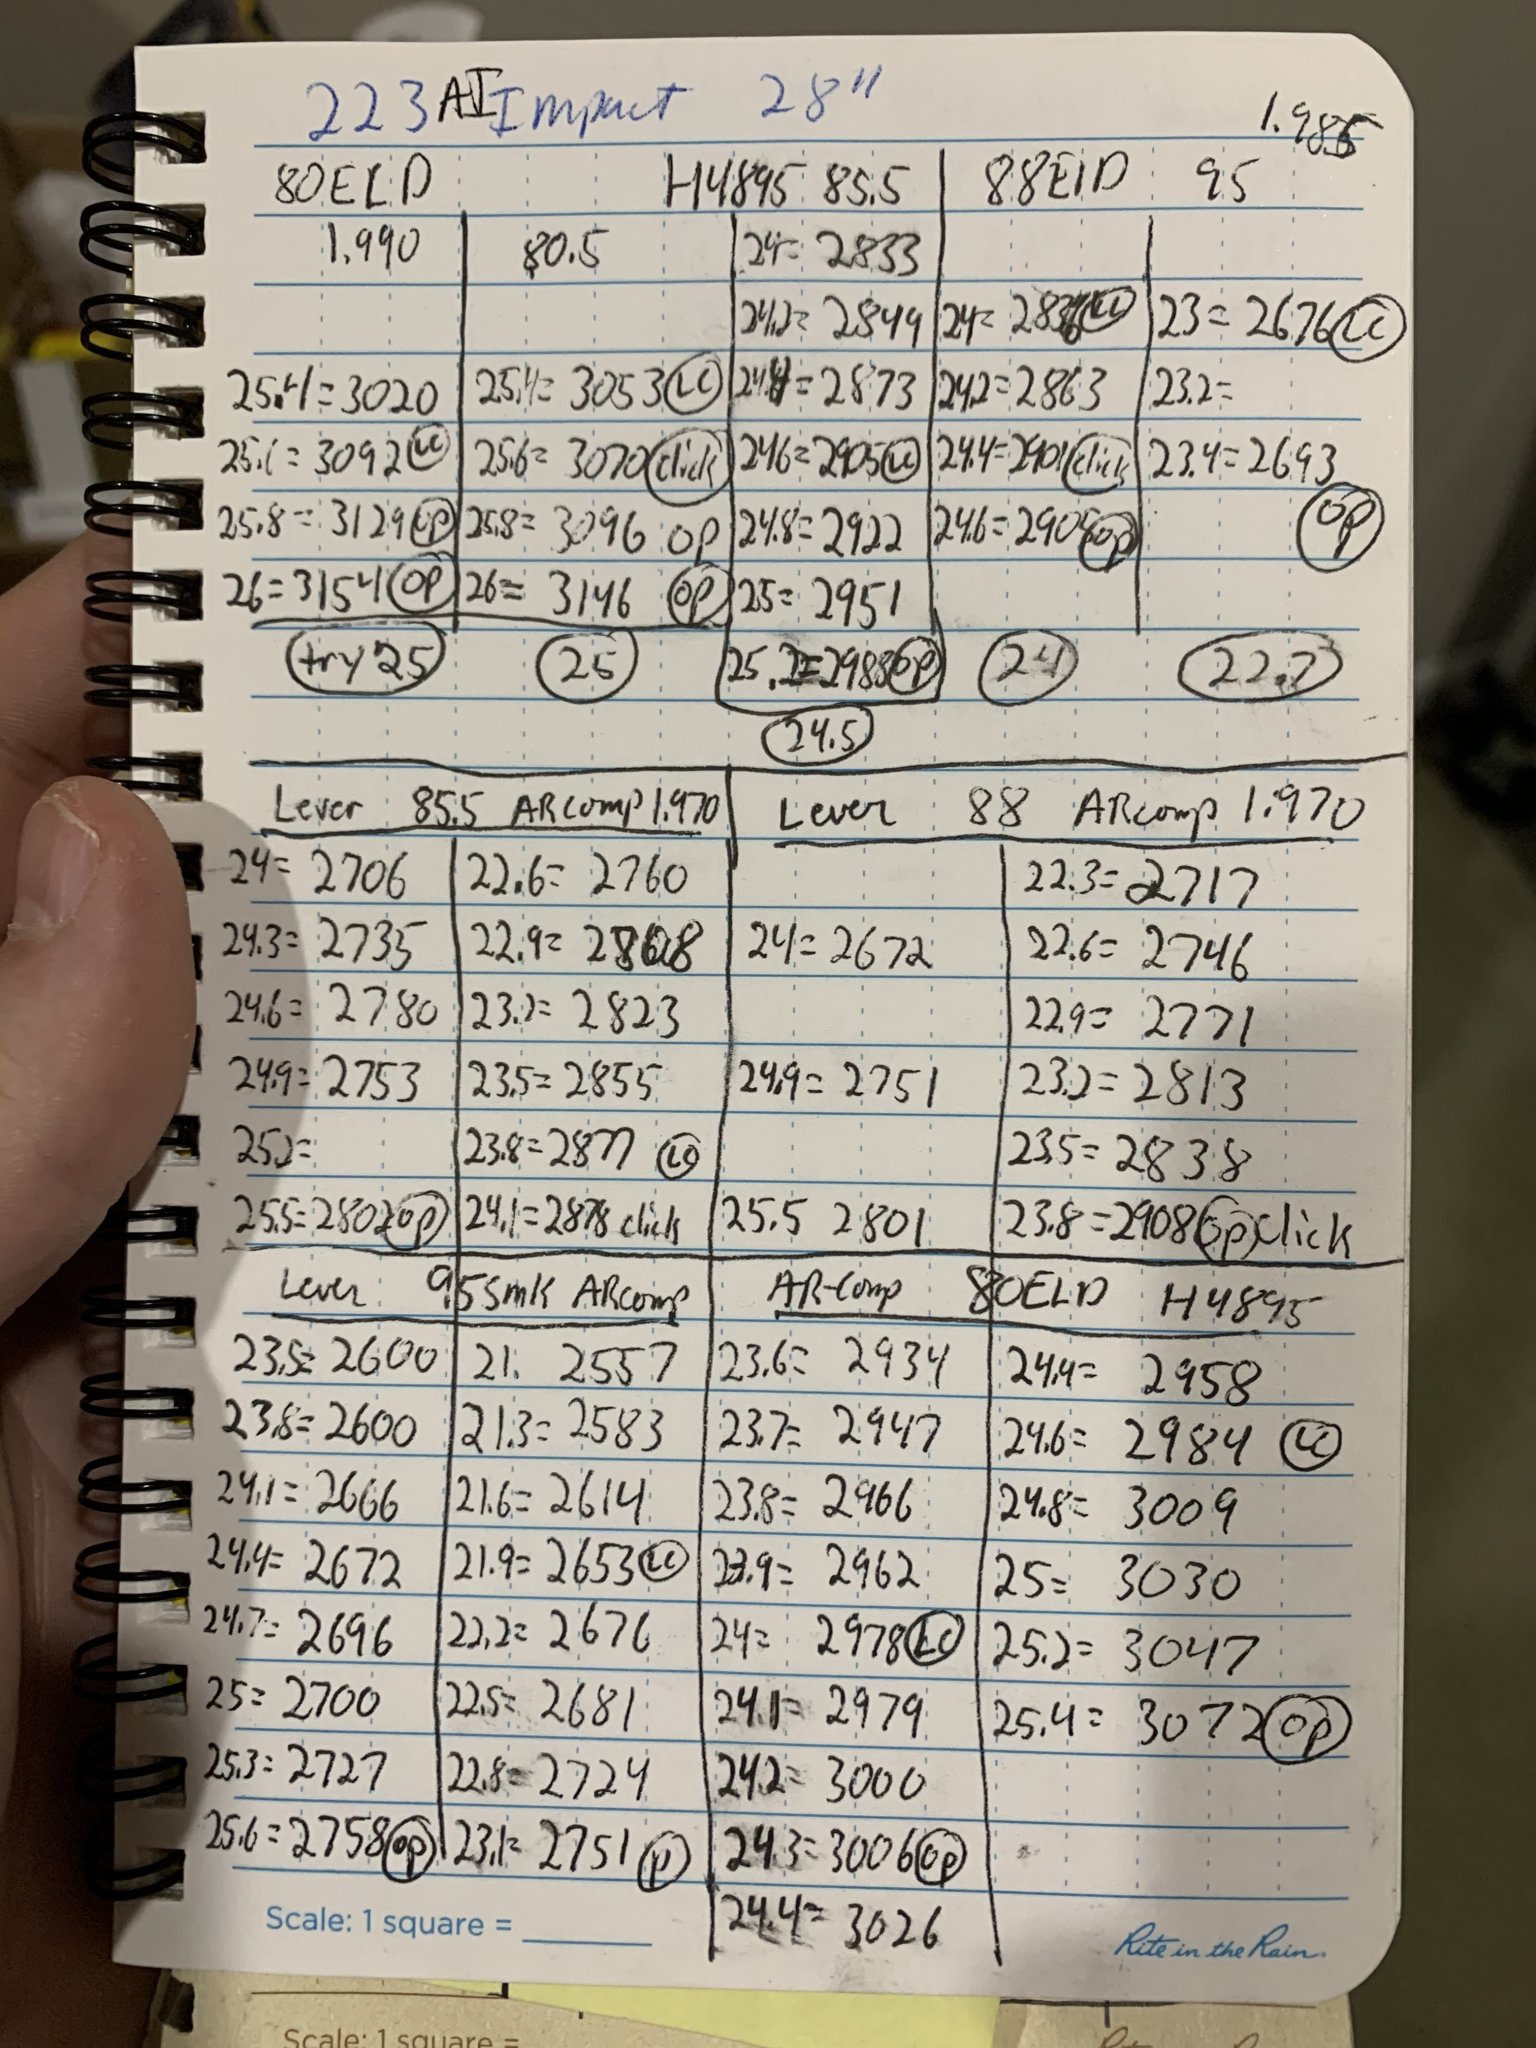 223 AI Impact 28"
1.985
80ELD H4895 85.5 88ELD 95
1.990 80.5 24= 2833
24.2= 2849 24= 2836 LC 23= 2676 LC
25.4=3020 25.4= 3053 LC 24.4= 2873 24.2=2863 23.2=
25.6=3092 LC 25.6= 3070 click 24.6=2905 LC 24.4=2901 click 23.4=2693
25.8=3129 op 25.8= 3096 op 24.8=2922 24.6=2905 op op
26=3154 op 26= 3146 op 25= 2951
try 25 25 25.2=2988 op 24 22.7
24.5
Lever 85.5 ARcomp 1.970 Lever 88 ARcomp 1.970
24= 2706 22.6= 2760 22.3= 2717
24.3= 2735 22.9= 24=2672 22.6= 2746
24.6= 2780 23.2= 2823 22.9= 2771
24.9= 2753 23.5=2855 24.9=2751 23.2= 2813
25.2= 23.8=2877 LC 23.5= 2838
25.5=2802 op 24.1=2878 click 25.5 2801 23.8=2908 op click
Lever 95 smk ARcomp AR-comp 80ELD H4895
23.5=2600 21. 2557 23.6= 2934 24.4= 2958
23.8=2600 21.3=2583 23.7= 2947 24.6= 2984 LC
24.1=2666 21.6=2614 23.8= 2966 24.8= 3009
24.4= 2672 21.9=2653 LC 23.9= 2962 25= 3030
24.7= 2696 22.2= 2676 24= 2978 LC 25.2= 3047
25=2700 22.5= 2681 24.1= 2979 25.4= 3072 op
25.3=2727 22.8=2724 24.2= 3000
25.6=2758 op 23.1=2751 p 24.3=3006 op
24.4= 3026
Scale: 1 square =
Rite in the Rain.
Scale: 1 square =